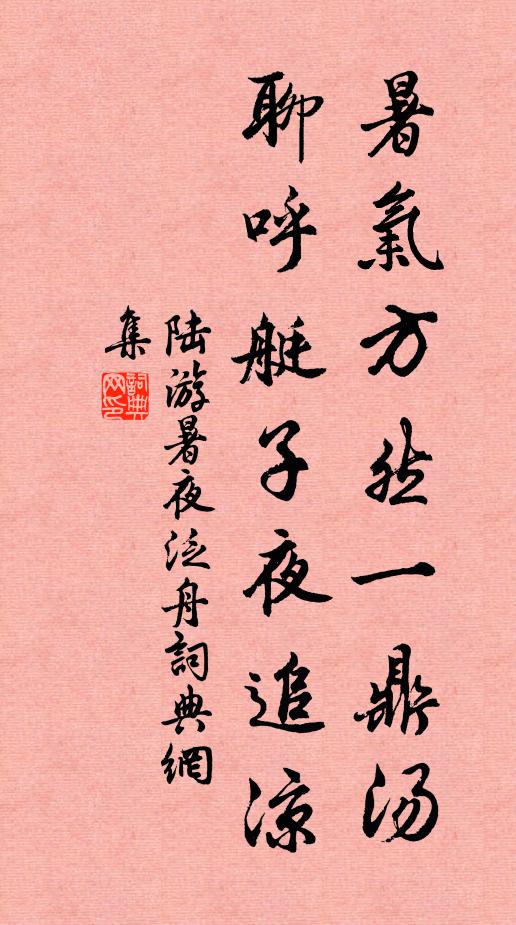 暑氣方然一鼎湯
聊呼艇子夜追涼
陸游暑夜泛舟詞典網
集
詞典
网印